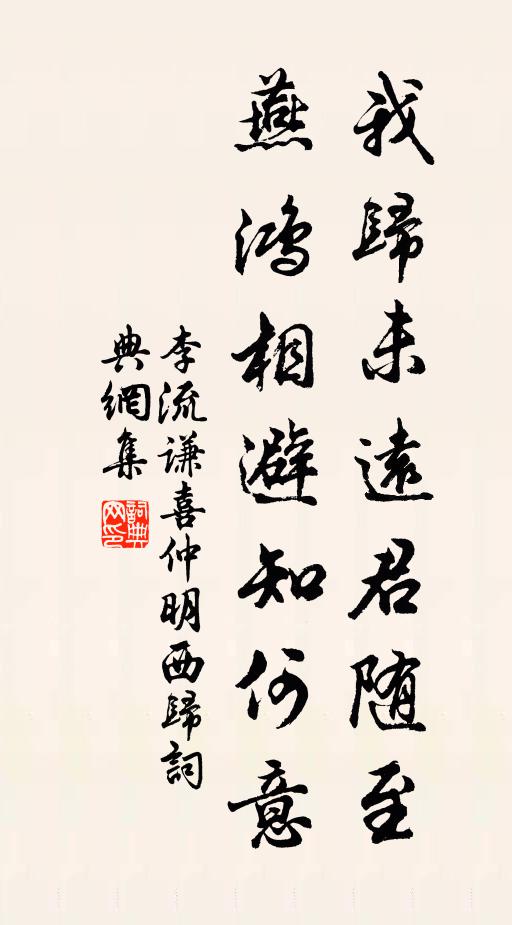 我歸未遠君随至
燕鴻相避知何意
李流谦喜仲明西歸詞
典網集
詞典网印